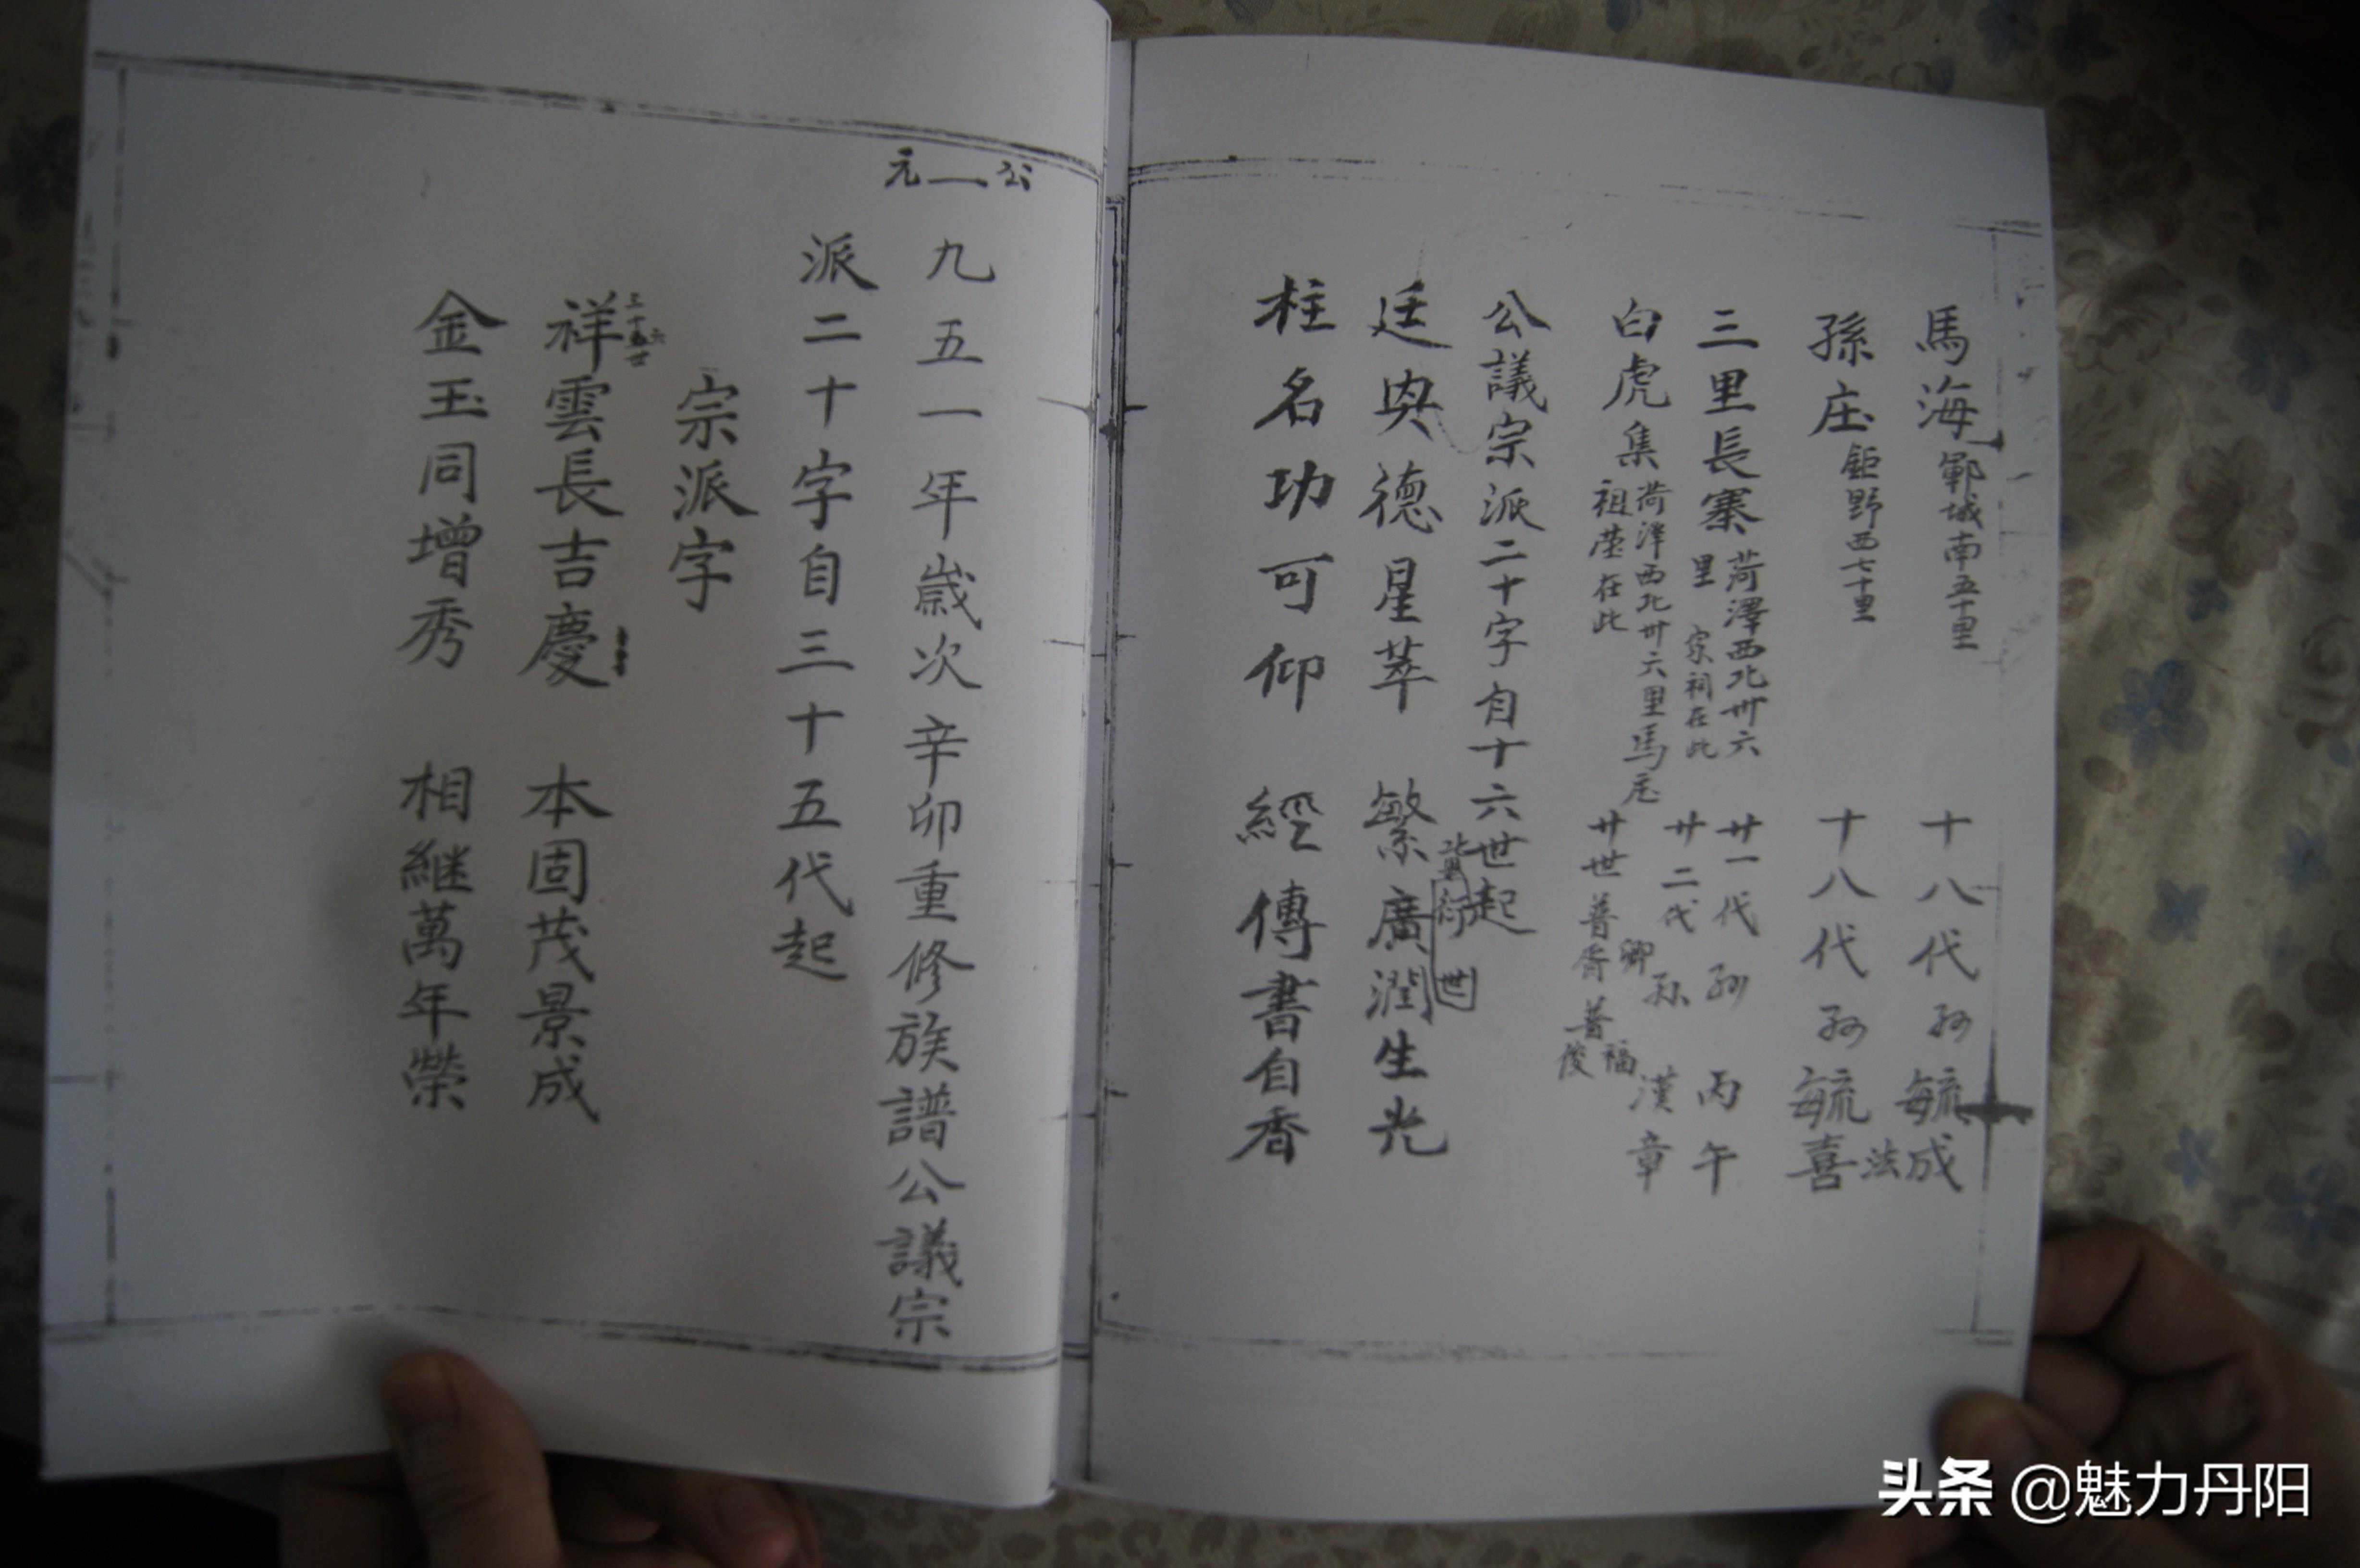 馬海 鄆城南五十里 十八代孙 毓成 法
孫庄 鉅野西七十里 十八代孙 毓喜
三里長寨 菏澤西北卅六里 家祠在此 廿一代孙 丙午
廿二代孫 漢章
白虎集 菏澤西北卅六里馬庄 祖塋在此 廿世 普 卿 普 福 俊
公議宗派二十字自十六世起
廷典德星萃 繁廣潤生光
衍 世
柱名功可仰 經傳書自香
公一元
九五一年歲次辛卯重修族譜公議宗
派二十字自三十五代起
宗派字
三十五世 六
祥雲長吉慶 本固茂景成
金玉同增秀 相継萬年榮
头条 @魅力丹阳